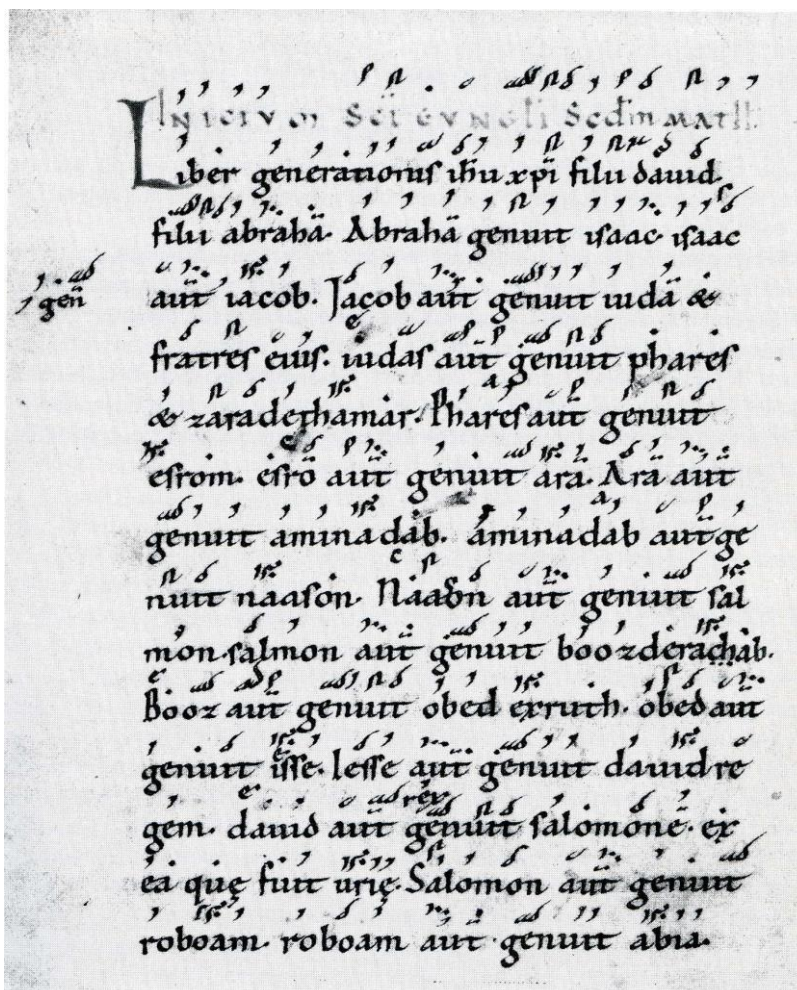 INICIVM SCĪ EVNGLĪI Sc̄dm MATH
Liber generationis ih̄u xp̄i filii dauid.
filii abrahā. Abrahā genuit isaac. isaac
aūt iacob. Jacob aūt genuit iudā &
gen̄
fratres eius. iudas aūt genuit phares
& zara dethamar. Phares aūt genuit
esrom. esrō aūt genuit arā. Arā aūt
genuit aminadab. aminadab aūt ge
nuit naason. Naason aūt genuit sal
mon. salmon aūt genuit booz derachab.
Booz aūt genuit obed exruth. obed aūt
genuit iesse. Iesse aūt genuit dauid re
rex
gem. dauid aūt genuit salomonē. ex
ea que fuit urię. Salomon aūt genuit
roboam. roboam aūt genuit abia.